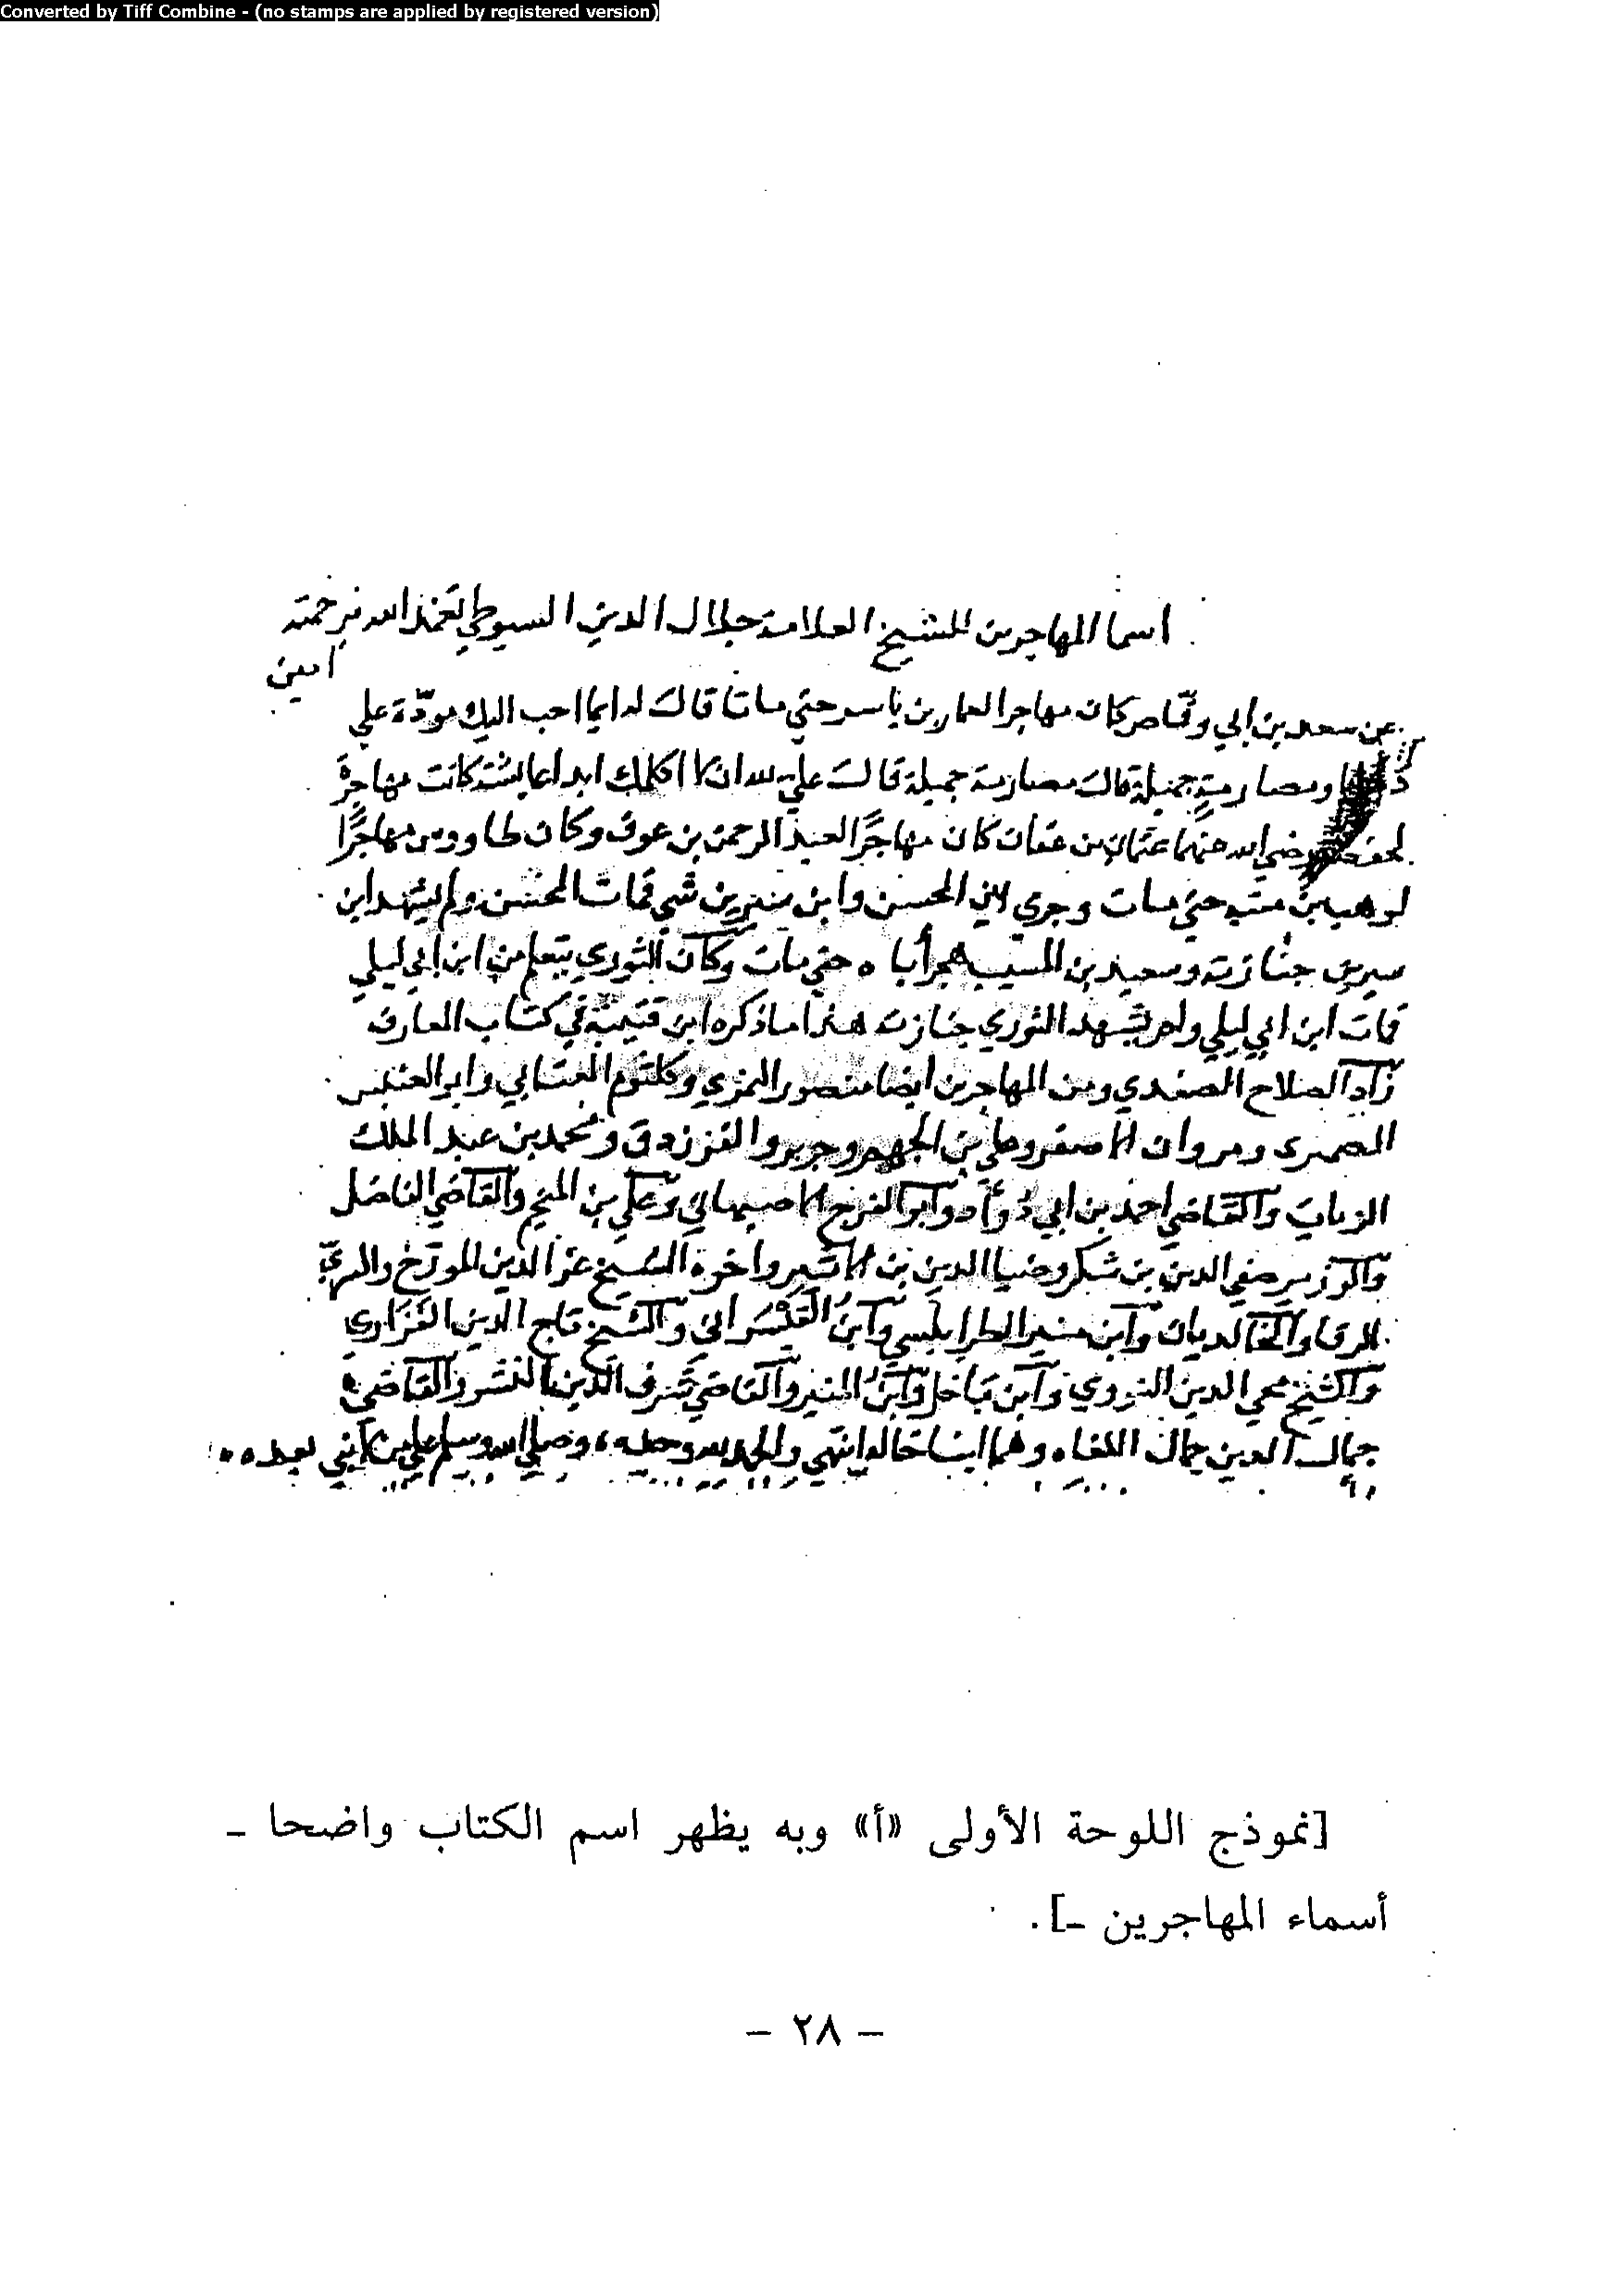 Converted by Tiff Combine - (no stamps are applied by registered version)
اسما المهاجرين للشيخ العلامة جلال الدين السيوطي تغمده الله برحمته
امين
عن سعد بن ابي وقاص كان مهاجرا لعمار بن ياسر حتي ماتا قال له ايما احب اليك مودة علي
ومصارمة جميلة قال مصارمة جميلة قال علي لله ان لا اكلمك ابدا عايشة كانت مهاجرة
لحفصة رضي الله عنهما عثمان بن عفان كان مهاجرًا لعبد الرحمن بن عوف وكان طاووس مهاجرًا
لوهب بن منبه حتي مات وجري بين الحسن وابن سيرين شي فمات الحسن ولم يشهد ابن
سيرين جنازته وسعيد بن المسيب هجر أباه حتي مات وكان الثوري يتعلم من ابن ابي ليلي
فمات ابن ابي ليلي ولم يشهد الثوري جنازته هذا ما ذكره ابن قتيبة في كتاب المعارف
زاد الصلاح الصفدي ومن المهاجرين ايضا منصور النمري وكلثوم العتابي وابو العنبس
الصمري ومروان الاصفر وعلي بن الجهم وجرير والفرزدق ومحمد بن عبد الملك
الزيات والقاضي احمد بن ابي دُوأد وابو الفرج الاصبهاني وعلي بن المنجم والقاضي الفاضل
والوزير صفي الدين بن شكر وضيا الدين بن الاثير واخوه الشيخ عز الدين المورخ والسري
الرفا والخالديان وابن منير الطرابلسي وابن القيسراني والشيخ تاج الدين الفزاري
والشيخ محي الدين النووي وابن باخل وابن المنير والقاضي شرف الدين والقاضي
جمال الدين وهما ابنا خاله انتهي والحمد لله وحده وصلي الله وسلم علي من لا نبي بعده
[نموذج اللوحة الأولى «أ» وبه يظهر اسم الكتاب واضحا ـ
أسماء المهاجرين ـ].
– ٢٨ –